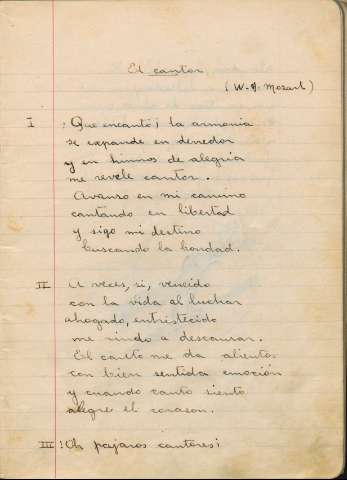 El cantor
(W. A. Mozart)
I ¡Que encanto¡ la armonia
se expande en derredor
y en himnos de alegria
me revele cantor.
Avanso en mi camino
cantando en libertad
y sigo mi destino
buscando la bondad.
II A veces, si, vencido
con la vida al luchar
ahogado, entristecido
me rindo a descansar.
El canto me da aliento
con bien sentida emoción
y cuando canto siento
alegre el corason.
III ¡Oh pajaros cantores¡